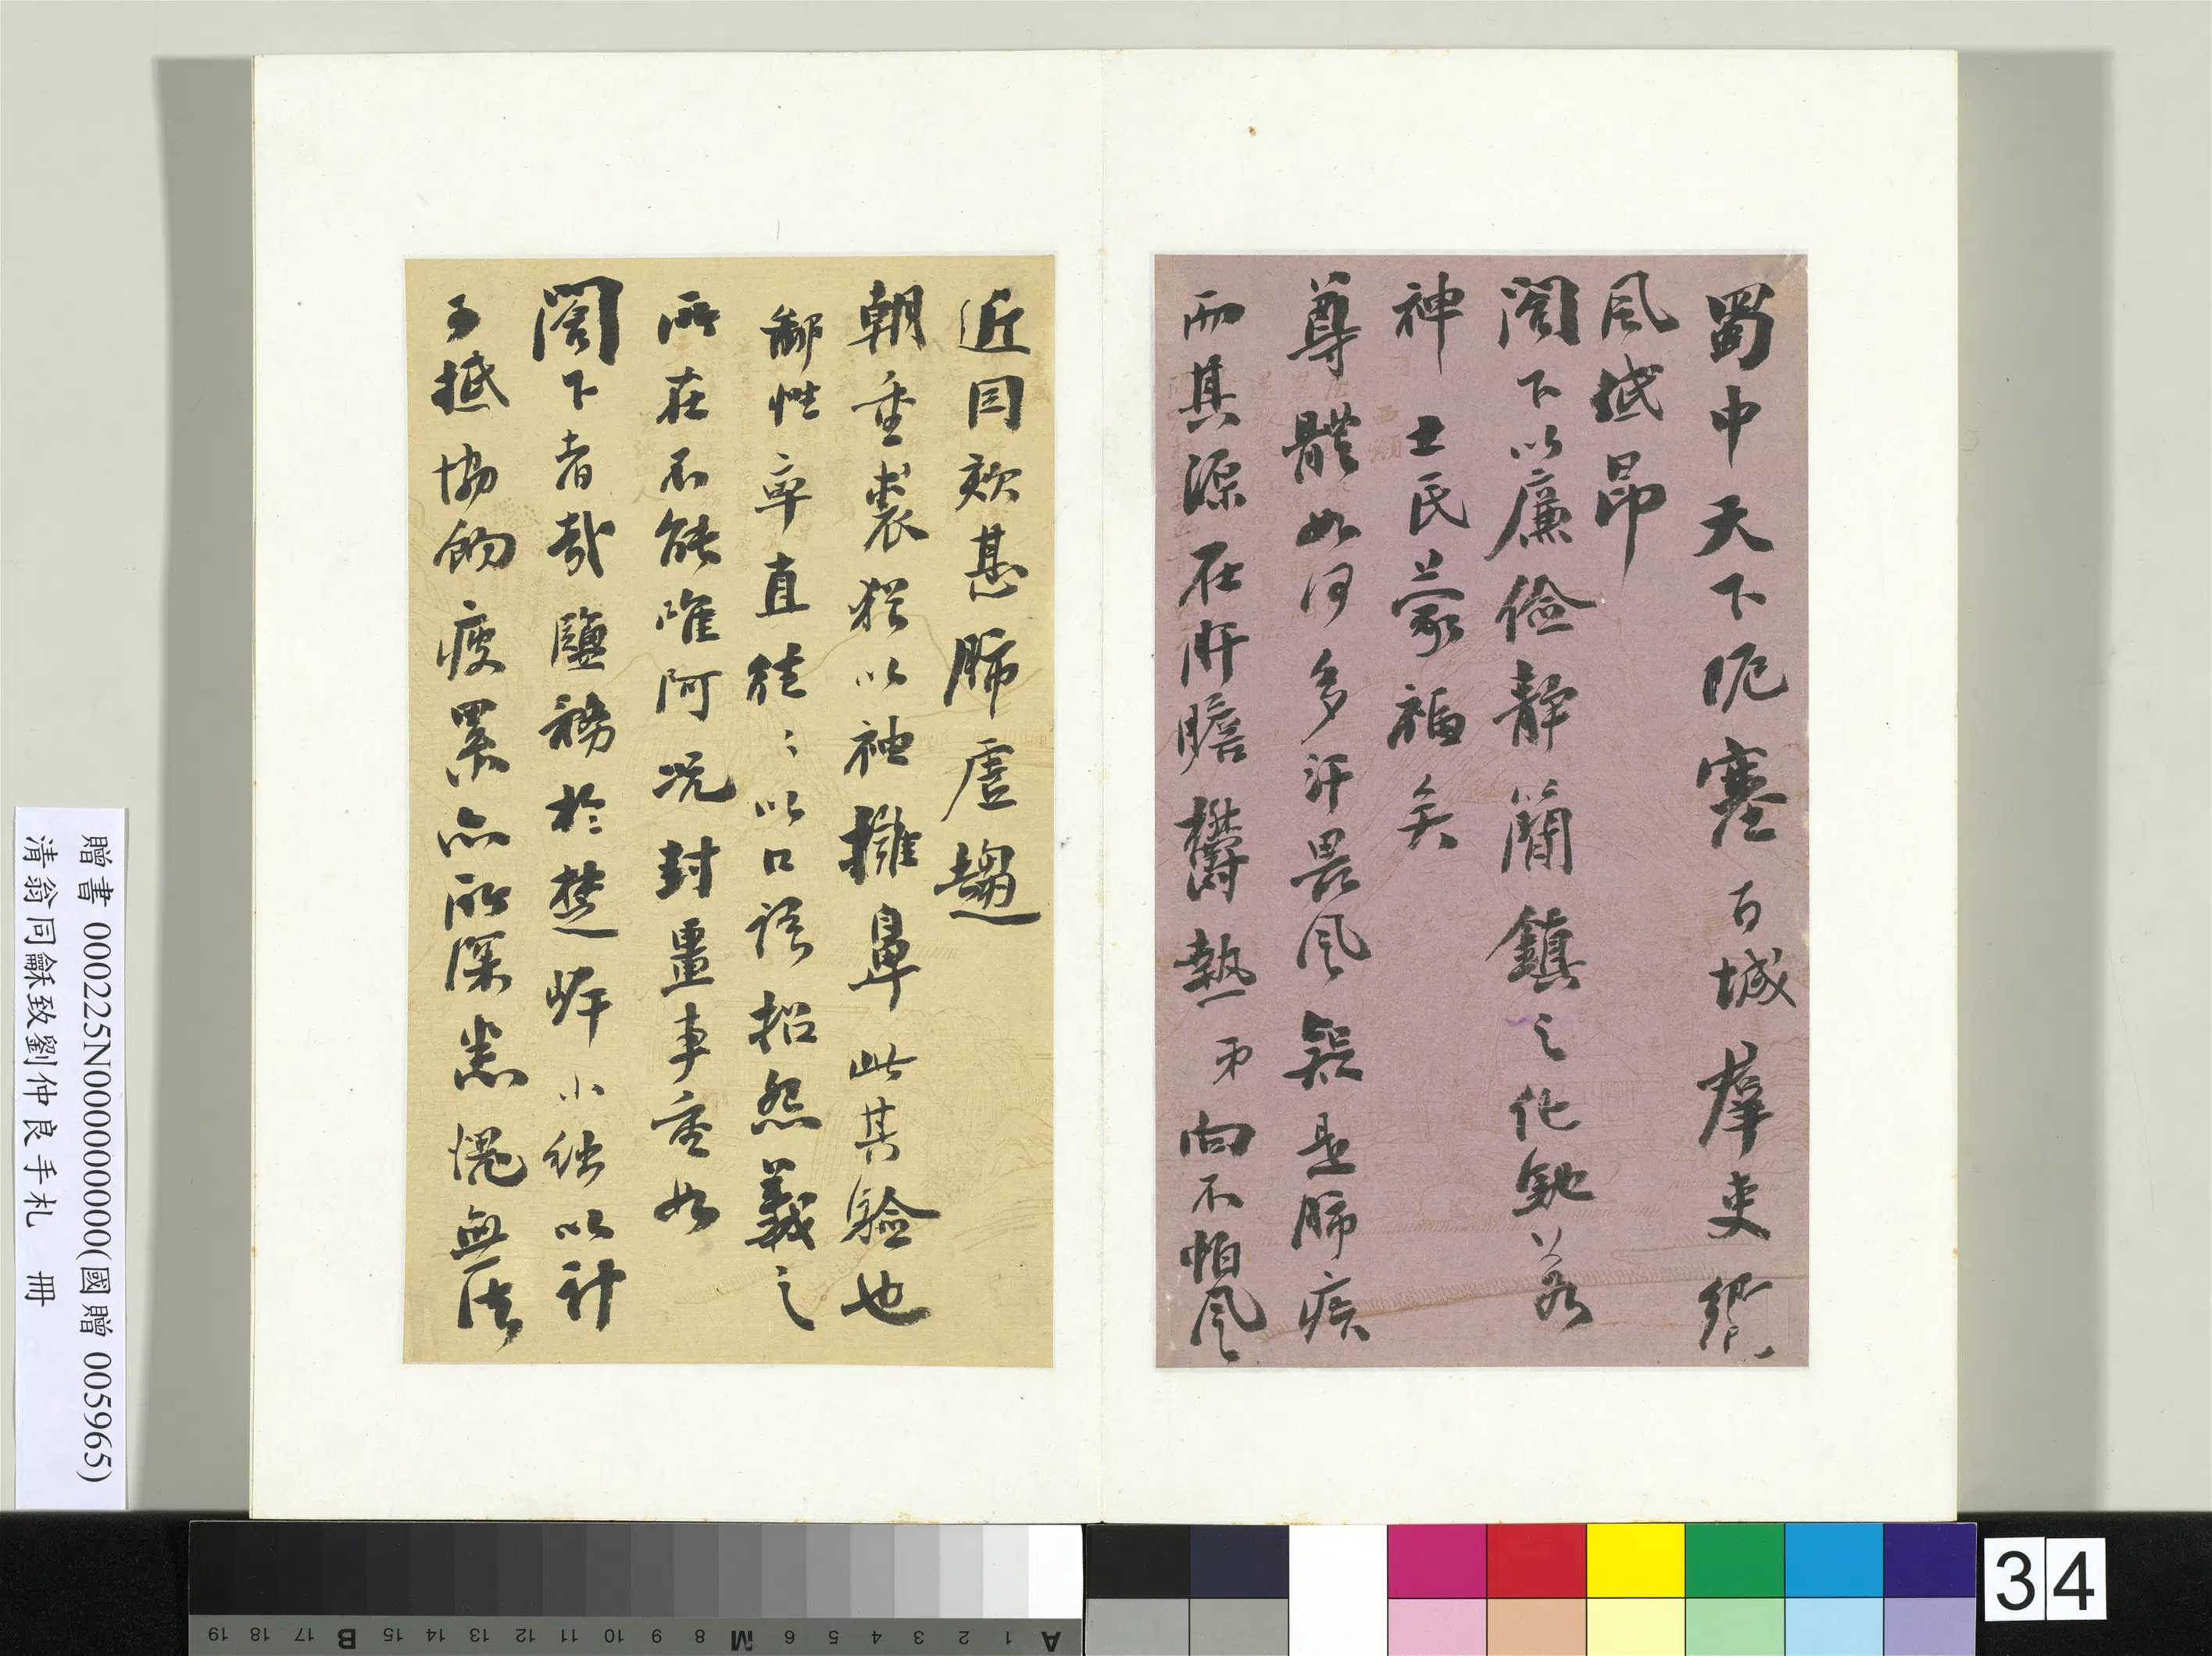 蜀中天下阨塞百城羣吏繫
風裁昂
閣下以廉儉靜簡鎮之化馳若
神士民蒙福矣
尊體如何多汗畏風疑是肺疾
而其源在肝膽欝熱弟向不怕風
近因欬甚肺虛趨
朝重裘猶以袖擁鼻此其驗也
鄙性率直往〻以口語招怨義之
所在不能唯阿况封畺事重如
閣下者哉鹽務於楚岸小絀以計
子抵協餉疲累亦所深悉愧無法
贈書 000225N000000000(國贈 005965)
清翁同龢致劉仲良手札 冊
34
A 1 2 3 4 5 6 M 8 9 10 11 12 13 14 15 B 17 18 19